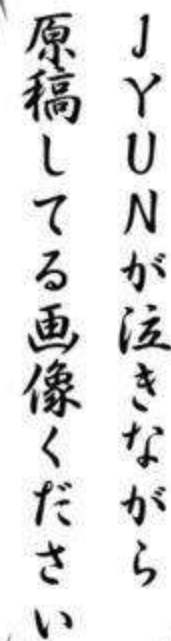 JYUNが泣きながら
原稿してる画像ください